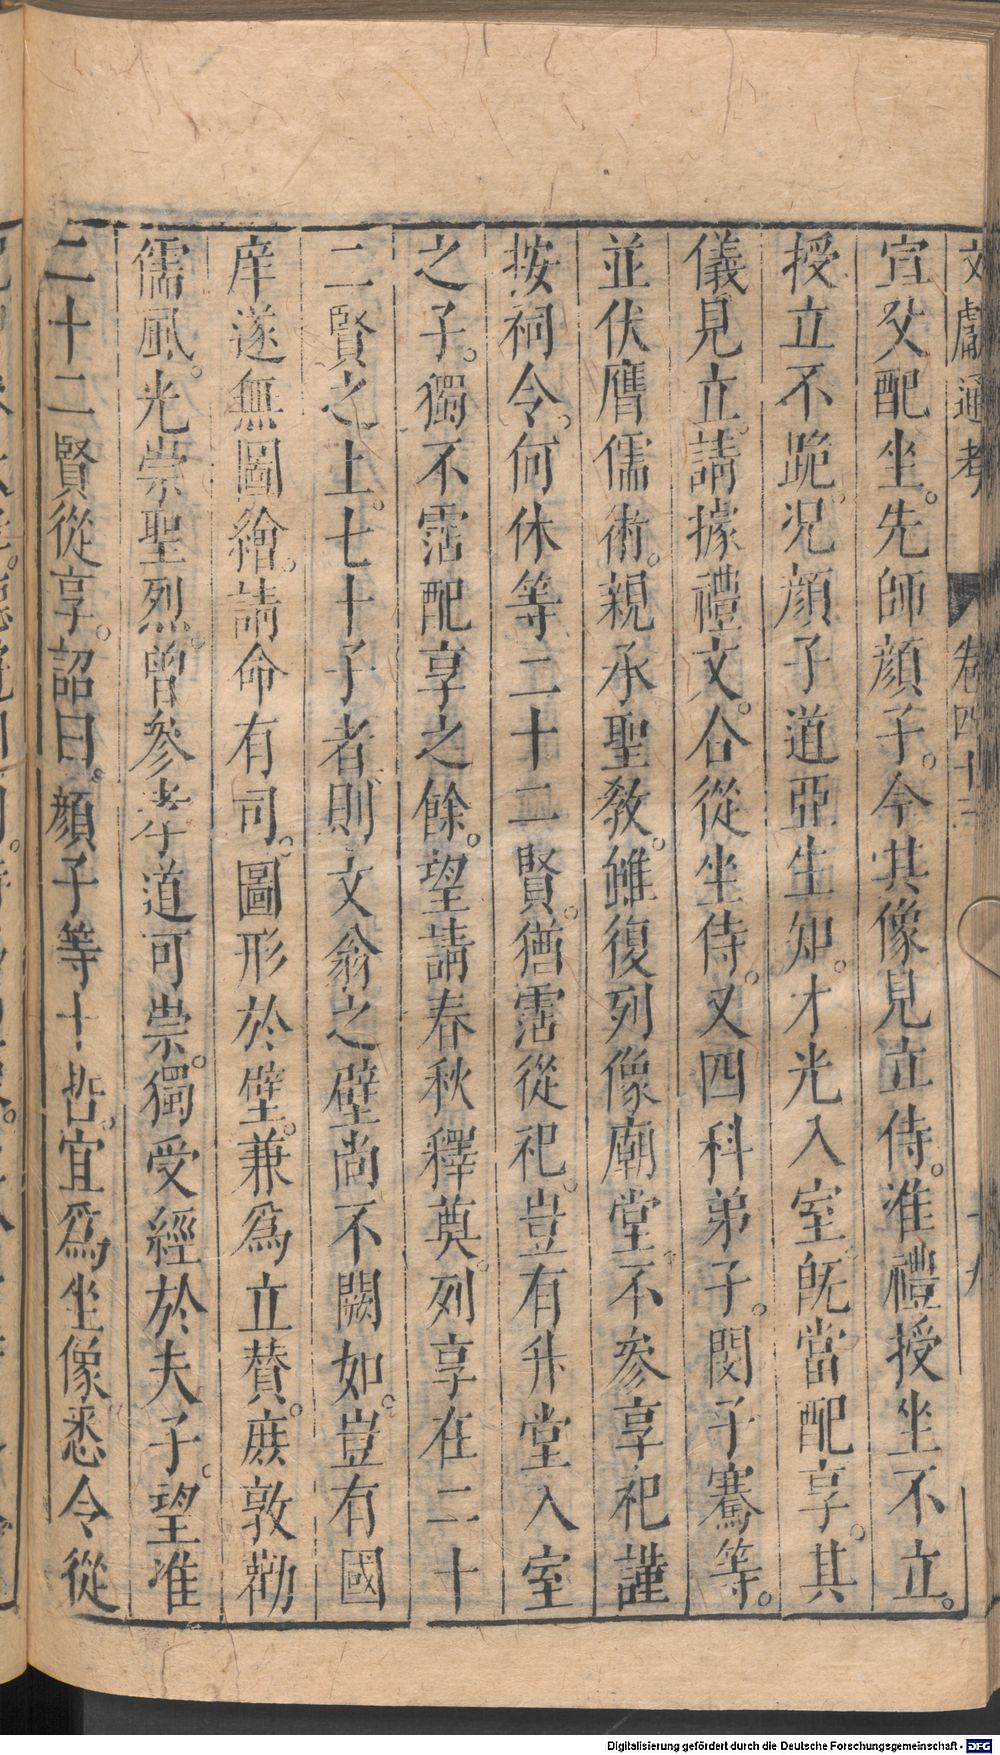 文獻通考 卷四十三 十九
宣父配坐。先師顔子。今其像見立侍。准禮授坐不立。
授立不跪。况顔子道亞生知。才光入室。旣當配享。其
儀見立。請據禮文。合從坐侍。又四科弟子。閔子騫等。
並伏膺儒術。親承聖教。雖復列像廟堂。不參享祀。謹
按祠令。何休等二十二賢。猶霑從祀。豈有升堂入室
之子。獨不霑配享之餘。望請春秋釋奠。列享在二十
二賢之上。七十子者。則文翁之壁尚不闕如。豈有國
庠遂無圖繪。請命有司。圖形於壁。兼爲立賛。庶敦勸
儒風。光崇聖烈。曾參孝道可崇。獨受經於夫子。望准
二十二賢從享。詔曰。顔子等十哲。宜爲坐像悉令從
Digitalisierung gefördert durch die Deutsche Forschungsgemeinschaft - DFG